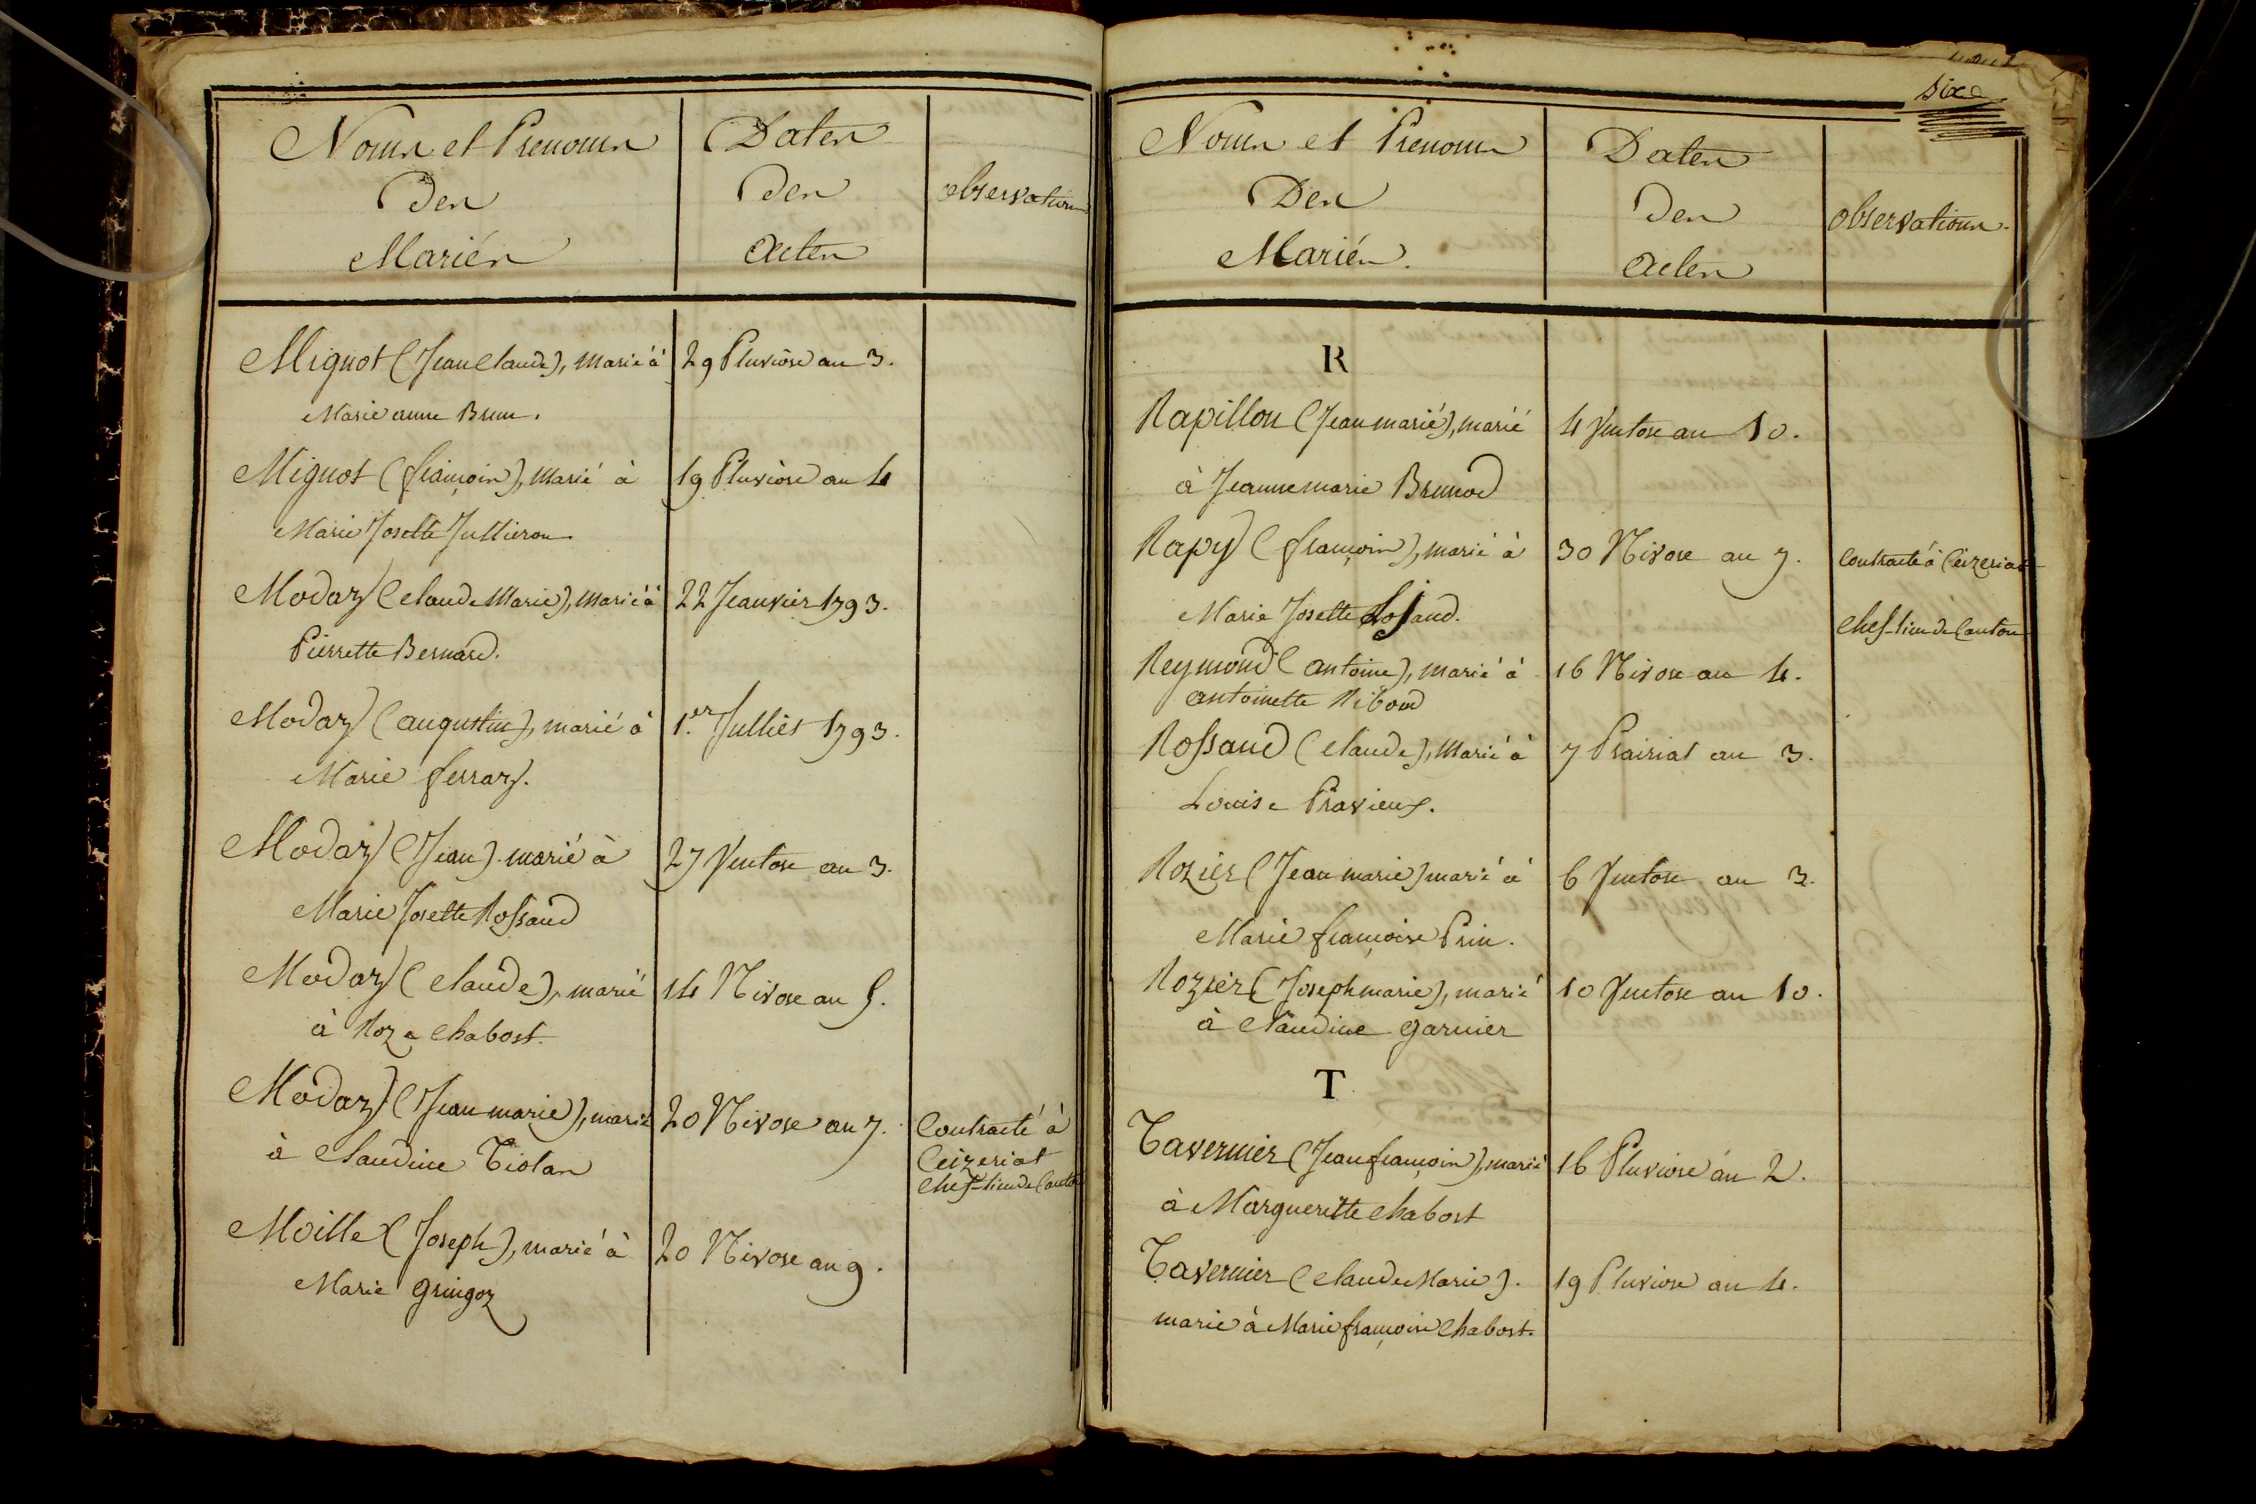 Noms et Prenoms
Des
Mariés
Dates
des
actes
observations
Mignot (Jean Claude), marié à
29 Pluviôse an 3.
Marie anne Brun.
Mignot (françois), marié à
19 Pluviôse an 4
Marie Josette Jullieron
Modas (Claude Marie), marié à
22 Jeanvier 1793.
Pierrette Bernard.
Modas (augustin), marié à
1.er Julliet 1793.
Marie ferras.
Modas (Jean) marié à
27 Ventose an 3.
Marie Josette Rossand
Modas (Claude), marié
14 Nivose an 5.
à Roze Chabost.
Modas (Jean marie), marié
20 Nivose an 7.
Contracté à
à Claudine Tiolan
Ceizeriat
chef-lieu de Canton
Moille (Joseph), marié à
20 Nivose an 9.
Marie gringoz
six
Noms et Prenoms
Des
Mariés.
Dates
des
actes
observations.
R
Rapillon (Jean marié), marié
4 Ventose an 10.
à Jeanne marie Brunod
Rapy (françois), marié à
30 Nivose an 7.
Contracté à Ceizeriat
Marie Josette
chef-lieu de Canton
Reymond (antoine), marié à
16 Nivose an 4.
antoinette Riboud
Rossand (Claude), marié à
7 Prairial an 3.
Louise Pravieux.
Rozier (Jean marie) marié à
6 Ventose an 3.
Marie françoise Prin.
Rozier (Joseph marie), marié
10 Ventose an 10.
à Claudine garnier
T
Tavernier (Jean françois), marié
16 Pluviose an 2.
à Margueritte Chabost
Tavernier (Claude Marie).
19 Pluviose an 4.
marié à Marie françoise Chabost.